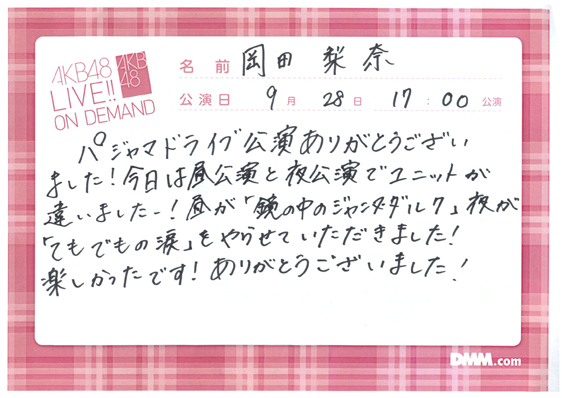 AKB48
LIVE!!
ON DEMAND
AKB
48
名前 岡田 梨奈
公演日 9月 28日 17:00 公演
パジャマドライブ公演ありがとうござい
ました!今日は昼公演と夜公演でユニットが
違いましたー!昼が「鏡の中のジャンヌダルク」夜が
「てもでもの涙」をやらせていただきました!
楽しかったです!ありがとうございました!
DMM.com